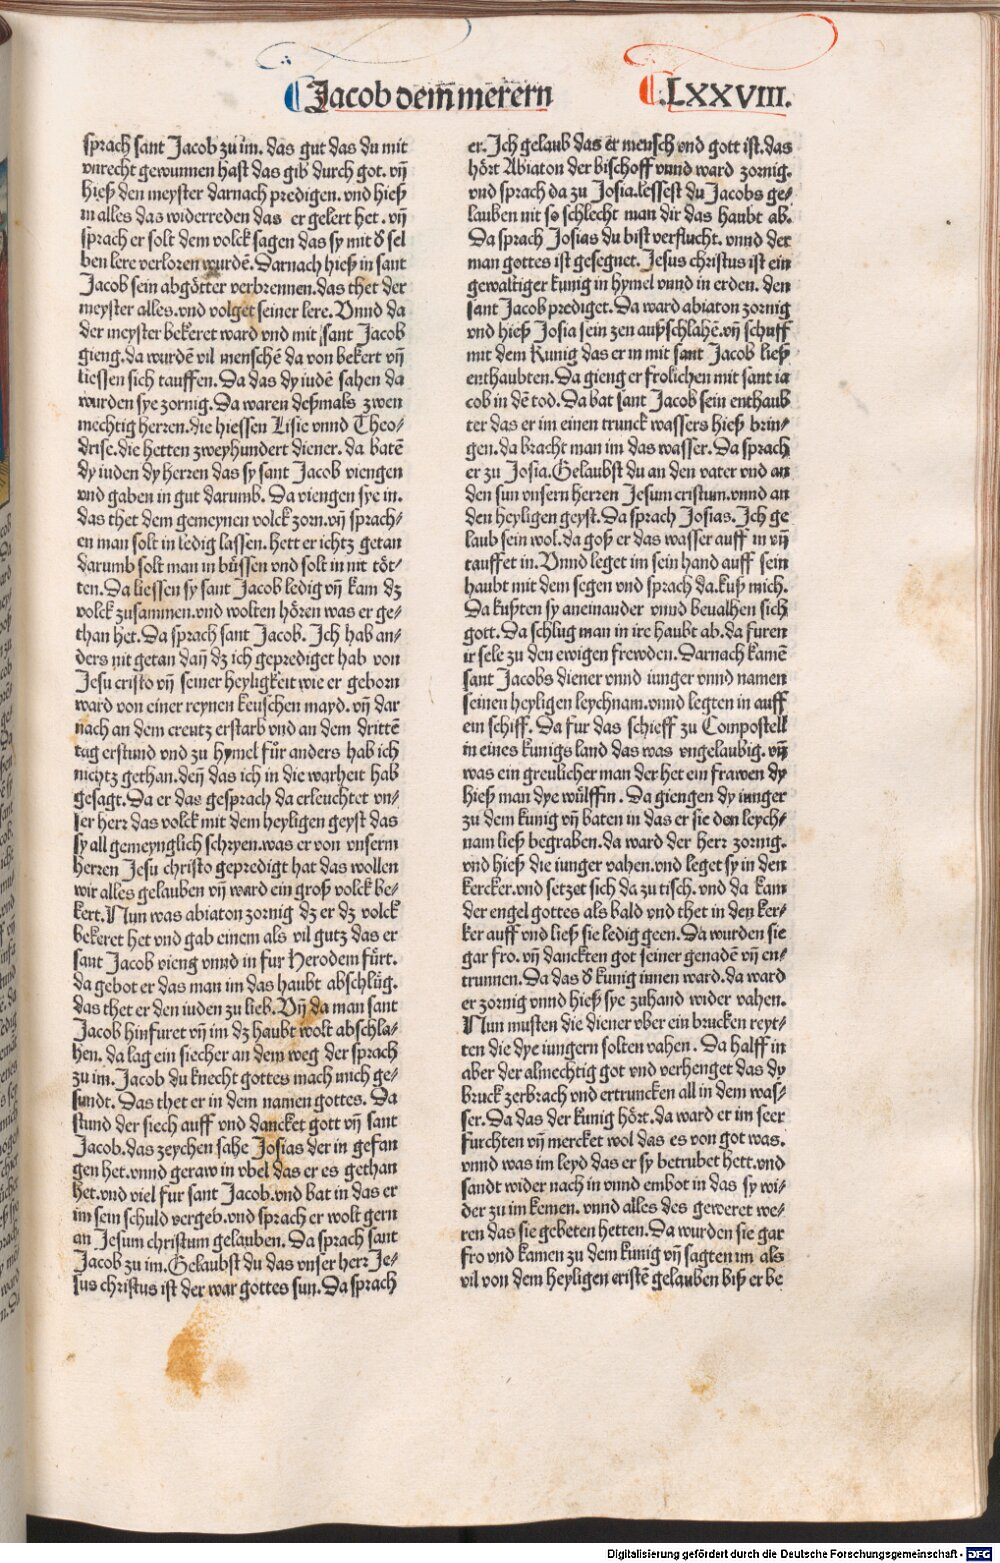 Jacob dem̄ merern
.LXXVIII.
sprach sant Jacob zů im. das gut das du mit
vnrecht gewunnen hast das gib durch got. vn̄
hieß den meyster darnach predigen. vnd hieß
in alles das widerreden das er gelert het. vn̄
sprach er solt dem volck sagen das sy mit d̕ sel
ben lere verloren wurdē. Darnach hieß in sant
Jacob sein abgötter verbrennen. das thet der
meyster alles. vnd volget seiner lere. Vnnd da
der meyster bekeret ward vnd mit sant Jacob
gieng. da wurdē vil menschē da von bekert vn̄
liessen sich tauffen. Da das dy iudē sahen da
wurden sye zornig. Da waren deßmals zwen
mechtig herren. die hiessen Lisie vnnd Theo⸗
drise. die hetten zweyhundert diener. da batē
dy iuden dy herren das sy sant Jacob viengen
vnd gaben in gut darumb. Da viengen sye in.
das thet dem gemeynen volck zorn. vn̄ sprach⸗
en man solt in ledig lassen. hett er ichtz getan
darumb solt man in büssen vnd solt in nit töt⸗
ten. Da liessen sy sant Jacob ledig vn̄ kam dz
volck zusammen. vnd wolten hören was er ge⸗
than het. Da sprach sant Jacob. Ich hab an⸗
ders nit getan dan̄ dz ich geprediget hab von
Jesu cristo vn̄ seiner heyligkeit wie er geborn
ward von einer reynen keuschen mayd. vn̄ dar
nach an dem creutz erstarb vnd an dem drittē
tag erstund vnd zu hymel fůr anders hab ich
nichtz gethan. den̄ das ich in die warheit hab
gesagt. Da er das gesprach da erleuchtet vn⸗
ser herr das volck mit dem heyligen geyst das
sy all gemeynglich schryen. was er von vnserm
herren Jesu christo gepredigt hat das wollen
wir alles gelauben vn̄ ward ein groß volck be⸗
kert. Nun was abiaton zornig dz er dz volck
bekeret het vnd gab einem als vil gutz das er
sant Jacob vieng vnnd in fur Herodem fürt.
da gebot er das man im das haubt abschlüg.
das thet er den iuden zu lieb. Vn̄ da man sant
Jacob hinfuret vn̄ im dz haubt wolt abschla⸗
hen. da lag ein siecher an dem weg der sprach
zu im. Jacob du knecht gottes mach mich ge⸗
sundt. Das thet er in dem namen gottes. Da
stund der siech auff vnd dancket gott vn̄ sant
Jacob. das zeychen sahe Josias der in gefan
gen het. vnnd geraw in vbel das er es gethan
het. vnd viel fur sant Jacob. vnd bat in das er
im sein schuld vergeb. vnd sprach er wolt gern
an Jesum christum gelauben. Da sprach sant
Jacob zu im. Gelaubst du das vnser herr Je⸗
sus christus ist der war gottes sun. Da sprach
er. Ich gelaub das er mensch vnd gott ist. das
hört Abiaton der bischoff vnnd ward zornig.
vnd sprach da zu Josia. lessest du Jacobs ge⸗
lauben nit so schlecht man dir das haubt ab.
Da sprach Josias du bist verflucht. vnnd der
man gottes ist gesegnet. Jesus christus ist ein
gewaltiger kunig in hymel vnnd in erden. den
sant Jacob prediget. Da ward abiaton zornig
vnd hieß Josia sein zen außschlahē. vn̄ schuff
mit dem Kunig das er in mit sant Jacob ließ
enthaubten. Da gieng er frolichen mit sant ia
cob in dē tod. Da bat sant Jacob sein enthaub
ter das er im einen trunck wassers hieß brin⸗
gen. da bracht man im das wasser. Da sprach
er zu Josia. Gelaubst du an den vater vnd an
den sun vnsern herren Jesum cristum. vnnd an
den heyligen geyst. Da sprach Josias. Ich ge
laub sein wol. da goß er das wasser auff in vn̄
tauffet in. Vnnd leget im sein hand auff sein
haubt mit dem segen vnd sprach da. kuß mich.
Da kußten sy aneinander vnnd beualhen sich
gott. Da schlug man in ire haubt ab. da furen
ir sele zu den ewigen frewden. Darnach kamē
sant Jacobs diener vnnd iunger vnnd namen
seinen heyligen leychnam. vnnd legten in auff
ein schiff. Da fur das schieff zu Compostell
in eines kunigs land das was vngelaubig. vn̄
was ein greulicher man der het ein frawen dy
hieß man dye wülffin. Da giengen dy iunger
zu dem kunig vn̄ baten in das er sie den leych⸗
nam ließ begraben. da ward der herr zornig.
vnd hieß die iunger vahen. vnd leget sy in den
kercker. vnd setzet sich da zu tisch. vnd da kam
der engel gottes als bald vnd thet in den ker⸗
ker auff vnd ließ sie ledig geen. Da wurden sie
gar fro. vn̄ danckten got seiner genadē vn̄ en⸗
trunnen. Da das d̕ kunig innen ward. da ward
er zornig vnnd hieß sye zuhand wider vahen.
Nun musten die diener vber ein brucken reyt⸗
ten die dye iungern solten vahen. Da halff in
aber der almechtig got vnd verhenget das dy
bruck zerbrach vnd ertruncken all in dem was⸗
ser. Da das der kunig hört. da ward er im seer
furchten vn̄ mercket wol das es von got was.
vnnd was im leyd das er sy betrubet hett. vnd
sandt wider nach in vnnd embot in das sy wi⸗
der zu im kemen. vnnd alles des geweret we⸗
ren das sie gebeten hetten. Da wurden sie gar
fro vnd kamen zu dem kunig vn̄ sagten im als
vil von dem heyligen cristē gelauben biß er be
Digitalisierung gefördert durch die Deutsche Forschungsgemeinschaft - DFG